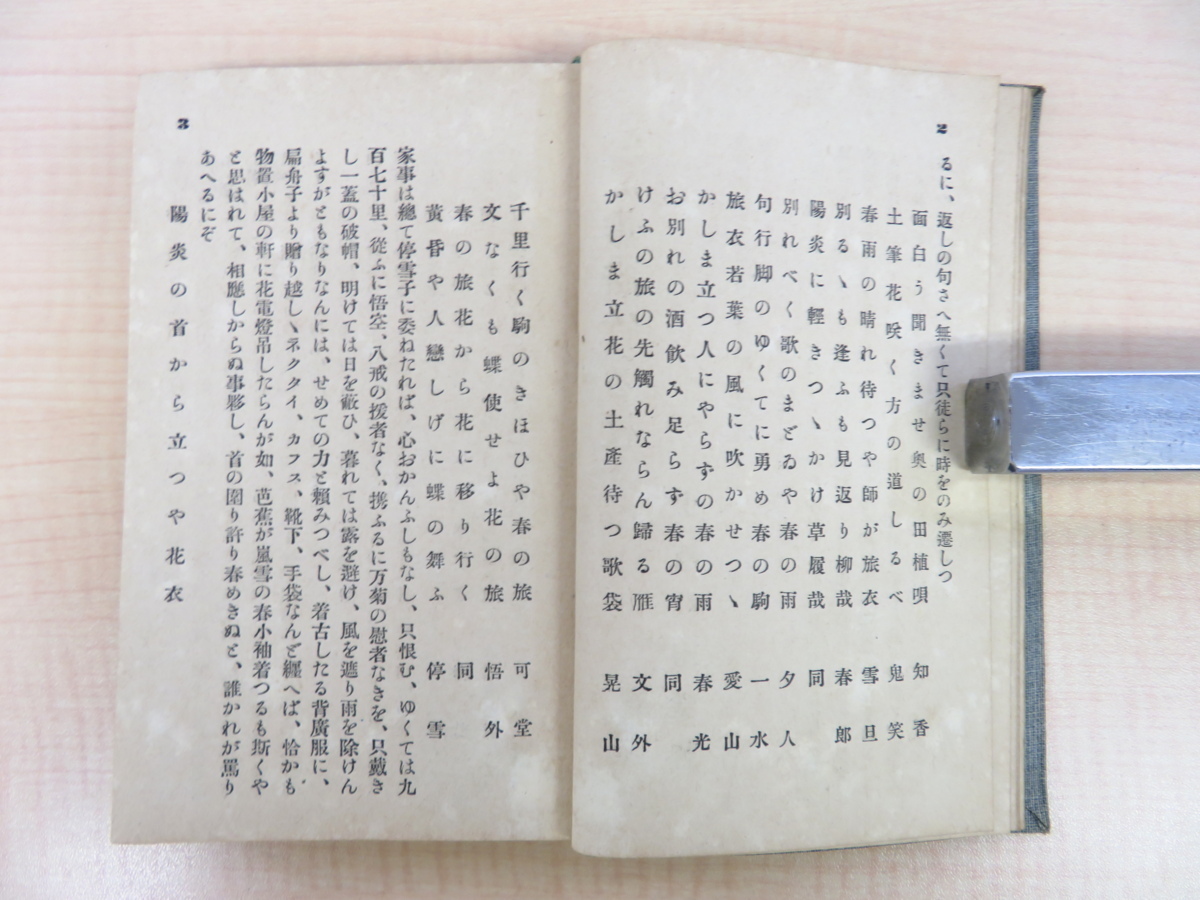 2
るに、返しの句さへ無くて只徒らに時をのみ遷しつ
面白う聞きませ奥の田植唄 知香
土筆花咲く方の道しるべ 鬼笑
春雨の晴れ待つや師が旅衣 雪旦
別るゝも逢ふも見返り柳哉 春郎
陽炎に輕きつゝかけ草履哉 同
別れべく歌のまどゐや春の雨 夕人
句行脚のゆくてに勇め春の駒 一水
旅衣若葉の風に吹かせつゝ 愛山
かしま立つ人にやらずの春の雨 春光
お別れの酒飲み足らず春の宵 同
けふの旅の先觸れならん歸る雁 文外
かしま立花の土產待つ歌袋 晃山
3
千里行く駒のきほひや春の旅 可堂
文なくも蝶使せよ花の旅 悟外
春の旅花から花に移り行く 同
黃昏や人戀しげに蝶の舞ふ 停雪
家事は總て停雪子に委ねたれば、心おかんふしもなし、只恨む、ゆくては九
百七十里、從ふに悟空、八戒の援者なく、携ふるに万菊の慰者なきを、只戴き
し一蓋の破帽、明けては日を蔽ひ、暮れては露を避け、風を遮り雨を除けん
よすがともなりなんには、せめての力と賴みつべし、着古したる背廣服に、
扁舟子より贈り越しゝネクタイ、カフス、靴下、手袋なんど纒へば、恰かも
物置小屋の軒に花電燈吊したらんが如、芭蕉が嵐雪の春小袖着つるも斯くや
と思はれて、相應しからぬ事夥し、首の圍り許り春めきぬと、誰かれが罵り
あへるにぞ
陽炎の首から立つや花衣